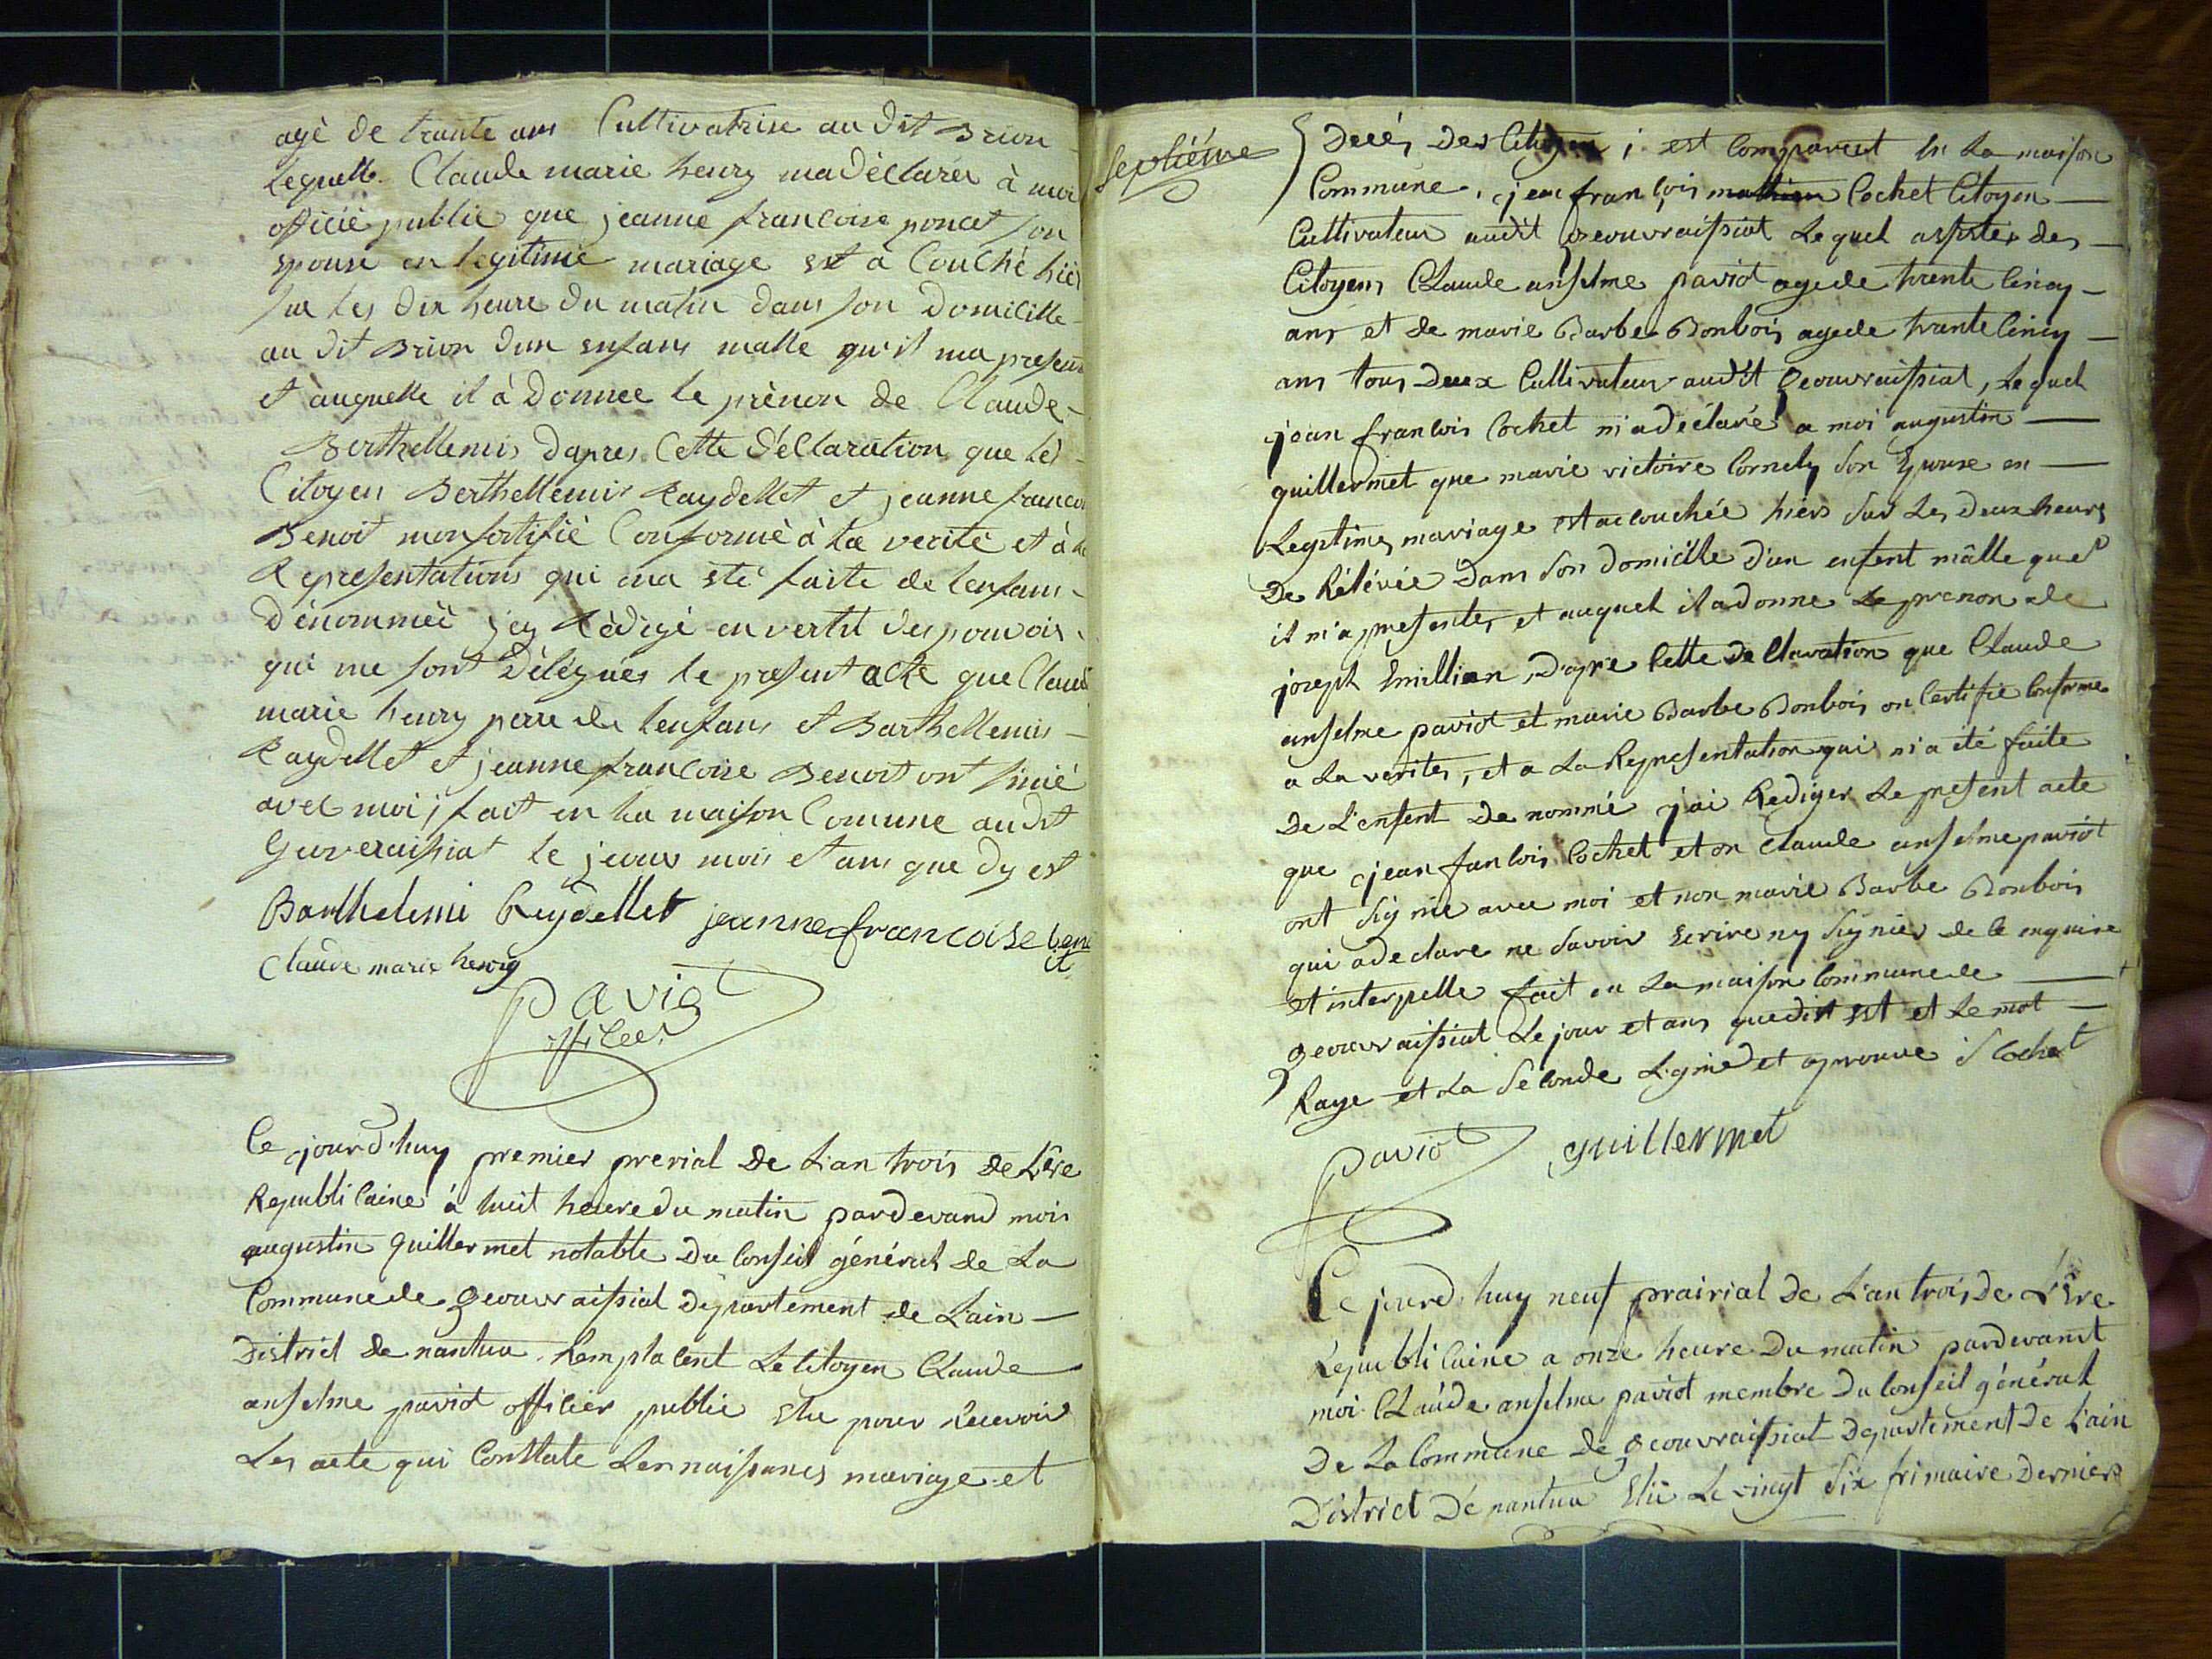 agé de trante ans Cultivatrise au dit Brion
lequelle Claude marie henry ma déclarér à moi
officié public que jeanne francoise poncet son
epouse en legitimie mariage est a Couché hier
sur les dix heure du matin dans son domicille
au dit Brion dun enfans malle qu'il ma presen
et auquelle il à donnee le prènon de Claude-
Berthellemis dapres Cette déClaration que les
Citoyen Berthellemis Raydellet et jeanne francoi
Benoit mon sertifié Conformè à la verité et à la
Representations qui ma été faite de lenfans-
dénommèè jey Rèdigé en vertu des pouvoirs
qui me sont délégués le present acte que Claud
marie henry perre de lenfans et Barthellemis -
Raydellet et jeanne francoise Benoit ont sinié
avec moi; fait en la maison Comune audit
Geuveraissiat le jeour mois et ans que dy est
Barthelemi Reydellet jeanne francoise ben
Claude marie henry
Paviot
officer
Ce jourd'huy premier prerial de L'an trois de L'ére
Republicaine à huit heure du matin pardevand mois
augustin Guillermet notable du Conseil général de La
Commune de geouvraissiat département de L'ain —
District de nantua Remplacent Le Citoyen Claude
anselme paviot officier public elu pour Recevoir
Les acte qui Constate Les naissances mariage et
Septiéme
Decés des Citoyen ; est Comparut en La maison
Commune, jean françois Cochet Citoyen —
Cultivateur audit geouvraissiat Lequel assister des —
Citoyens Claude anselme paviot agede trente Cinq —
ans et de marie Barbe Bonbois agede trante Cinq —
ans tous deux Cultivateur audit geouvraissiat, Lequel
jean francois Cochet m'a déclaré a moi augustin —
guillermet que marie victoire Cornely son Epouse en —
Legitimes mariage est acouchée hiers sur Les deux heures
De Rélévée Dans son domicille d'un enfent mâlle que
il m'a presenter, et auquel il a donne Le prenon de
joseph Emillian, D'apre Cette declaration que Claude
anselme paviot et marie Barbe Bonbois on Certifie Conforme
a La verites, et a La Representation qui m'a été faite
De L'enfent de nommé j'ai Rediger Le present acte
que jean fancois Cochet et on Claude anselme paviot
ont Signié avec moi et non marie Barbe Bonbois
qui adeclare ne Savoir Ecrire ny Signier de Ce enquire
et interpelle fait en La maison Commune de —
geouvraissiat Le jour et ans quedist est et Le mot —
Raye et La Seconde Ligne et aprouve J Cochet
Paviot guillermet
Ce jourd'huy neuf prairial de L'an trois de L'Ere
Republicaine a onze heure du matin pardevant
moi Claude anselme paviot membre du Conseil général
De La Commune de geouvraissiat Departement de L'ain
District Dé nantua Elu Le vingt Six frimaire Dernier